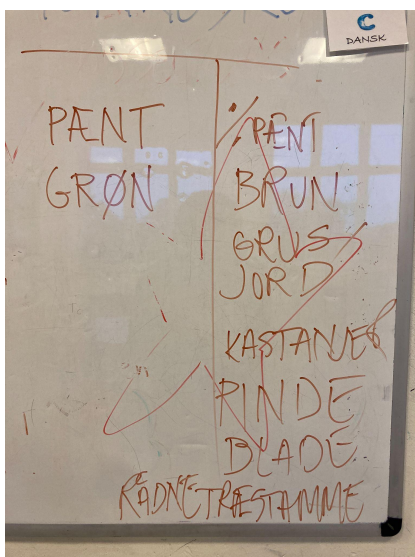 C
DANSK
PÆNT
GRØN
% PÆNT
BRUN
GRUS
JORD
KASTANJER
PINDE
BLADE
RÅDNE TRÆSTAMME